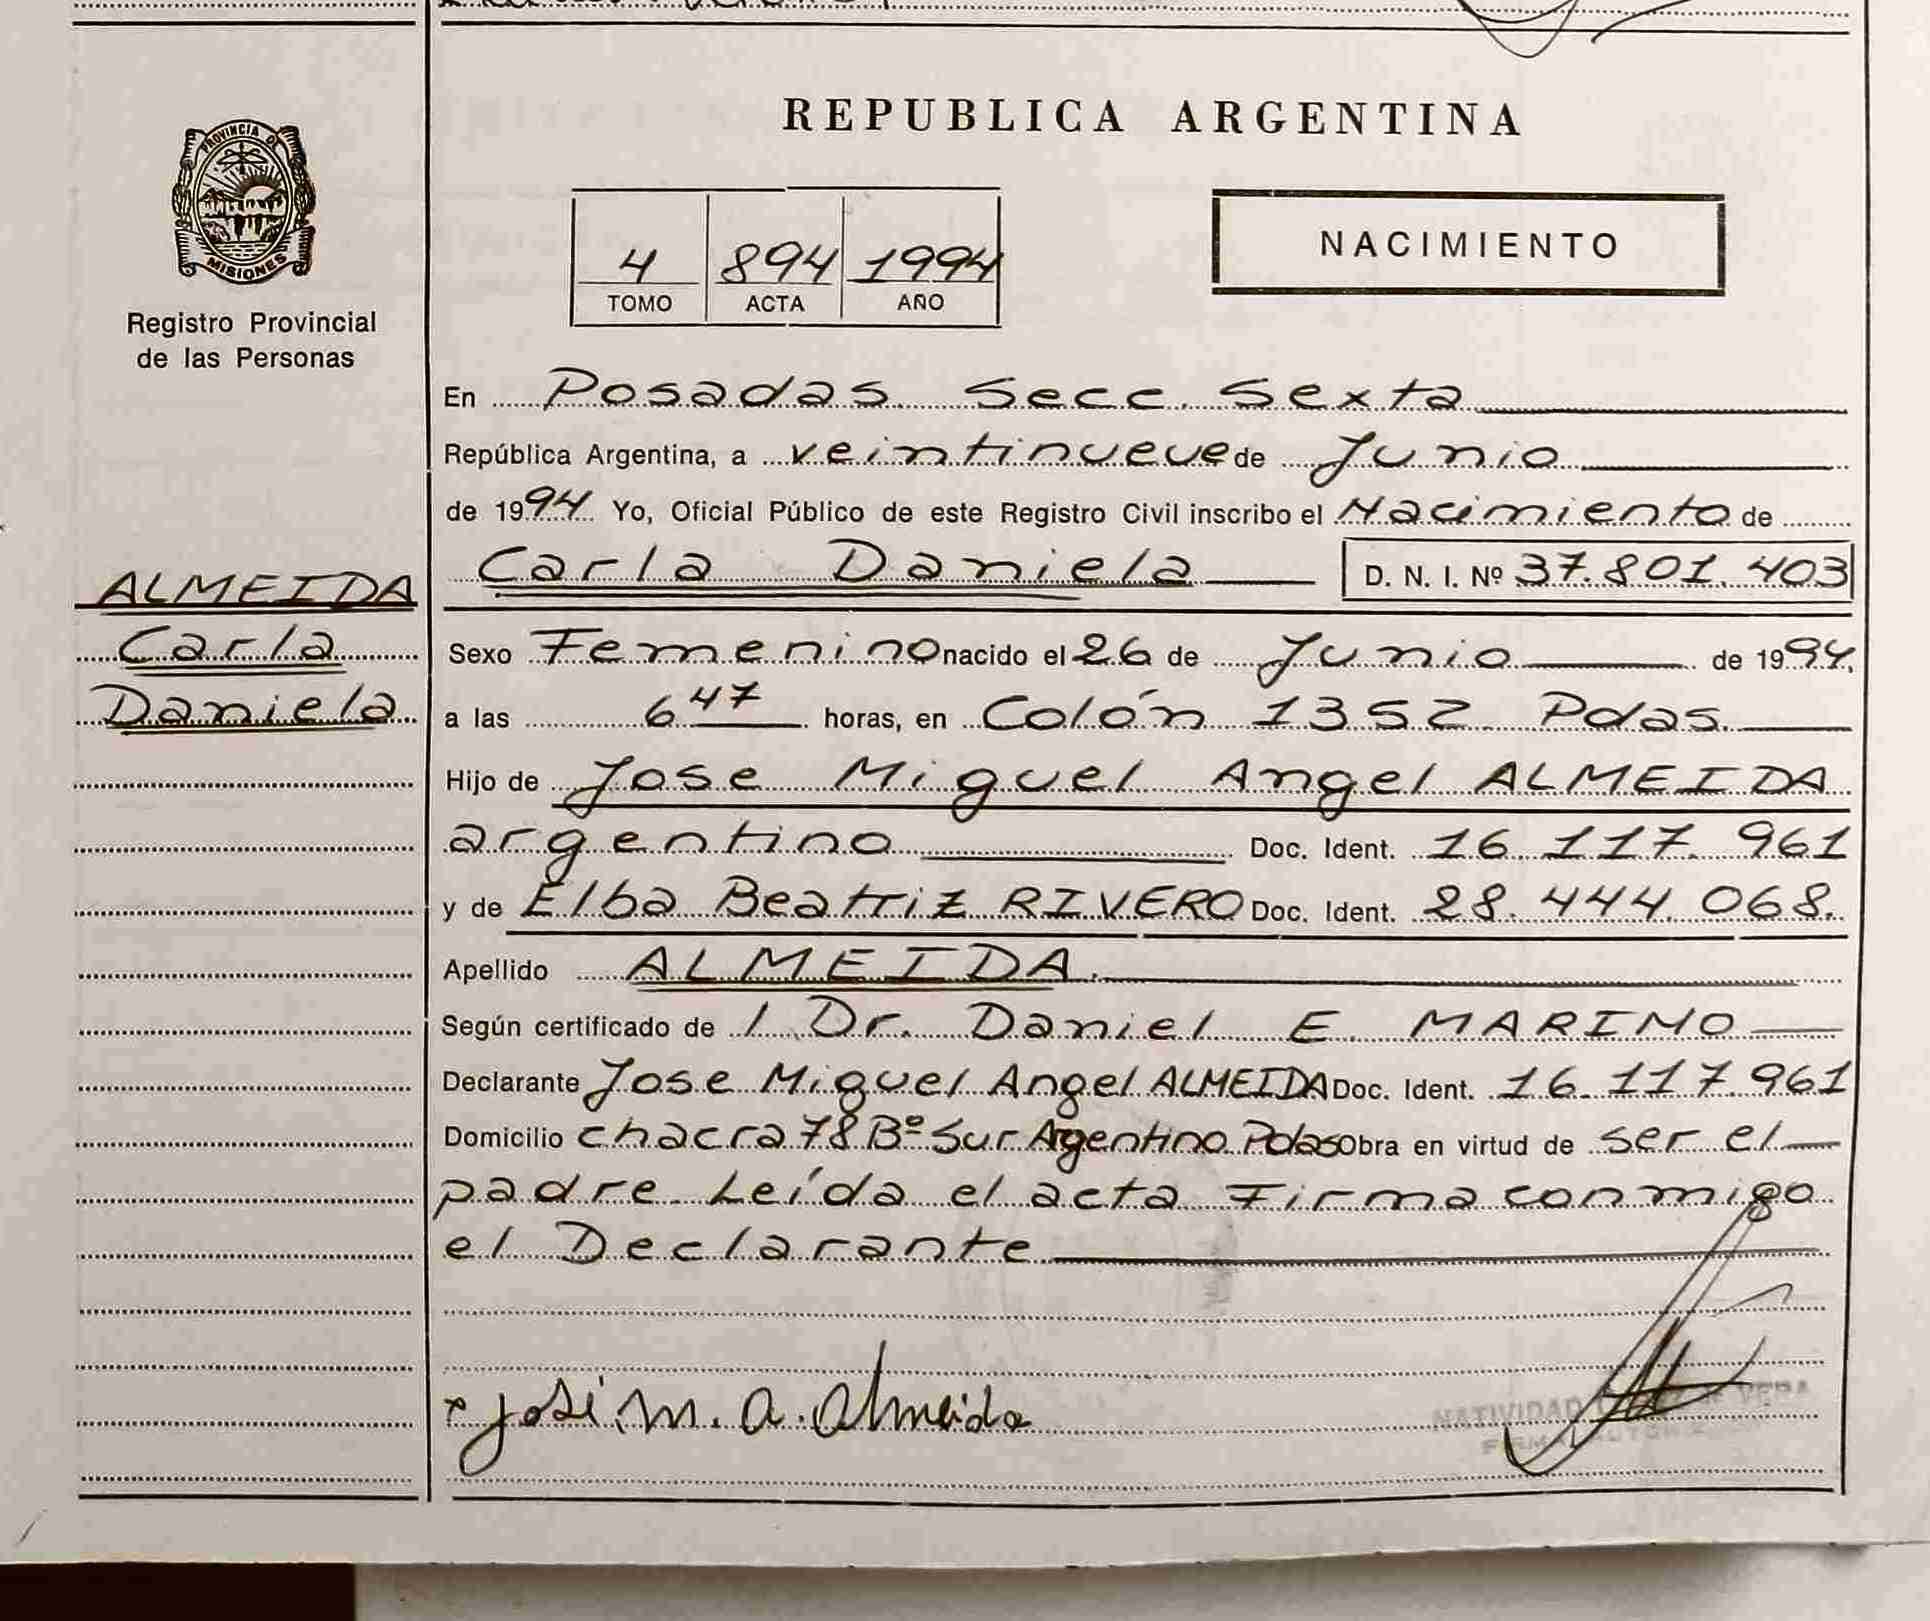 PROVINCIA DE
MISIONES
Registro Provincial
de las Personas
ALMEIDA
Carla
Daniela
REPUBLICA ARGENTINA
4 894 1994
TOMO ACTA AÑO
NACIMIENTO
En Posadas Secc. Sexta
República Argentina, a veintinueve de Junio
de 1994 Yo, Oficial Público de este Registro Civil inscribo el Nacimiento de
Carla Daniela D. N. I. Nº 37.801.403
Sexo Femenino nacido el 26 de Junio de 1994,
a las 6 47 horas, en Colón 1352 Pdas.
Hijo de Jose Miguel Angel ALMEIDA
argentino Doc. Ident. 16.117.961
y de Elba Beatriz RIVERO Doc. Ident. 28.444.068.
Apellido ALMEIDA.
Según certificado de / Dr. Daniel E. MARINO
Declarante Jose Miguel Angel ALMEIDA Doc. Ident. 16.117.961
Domicilio chacra 78 Bº Sur Argentino Pdas Obra en virtud de ser el
padre. Leída el acta Firma conmigo
el Declarante
José M. A. Almeida
NATIVIDAD VERA